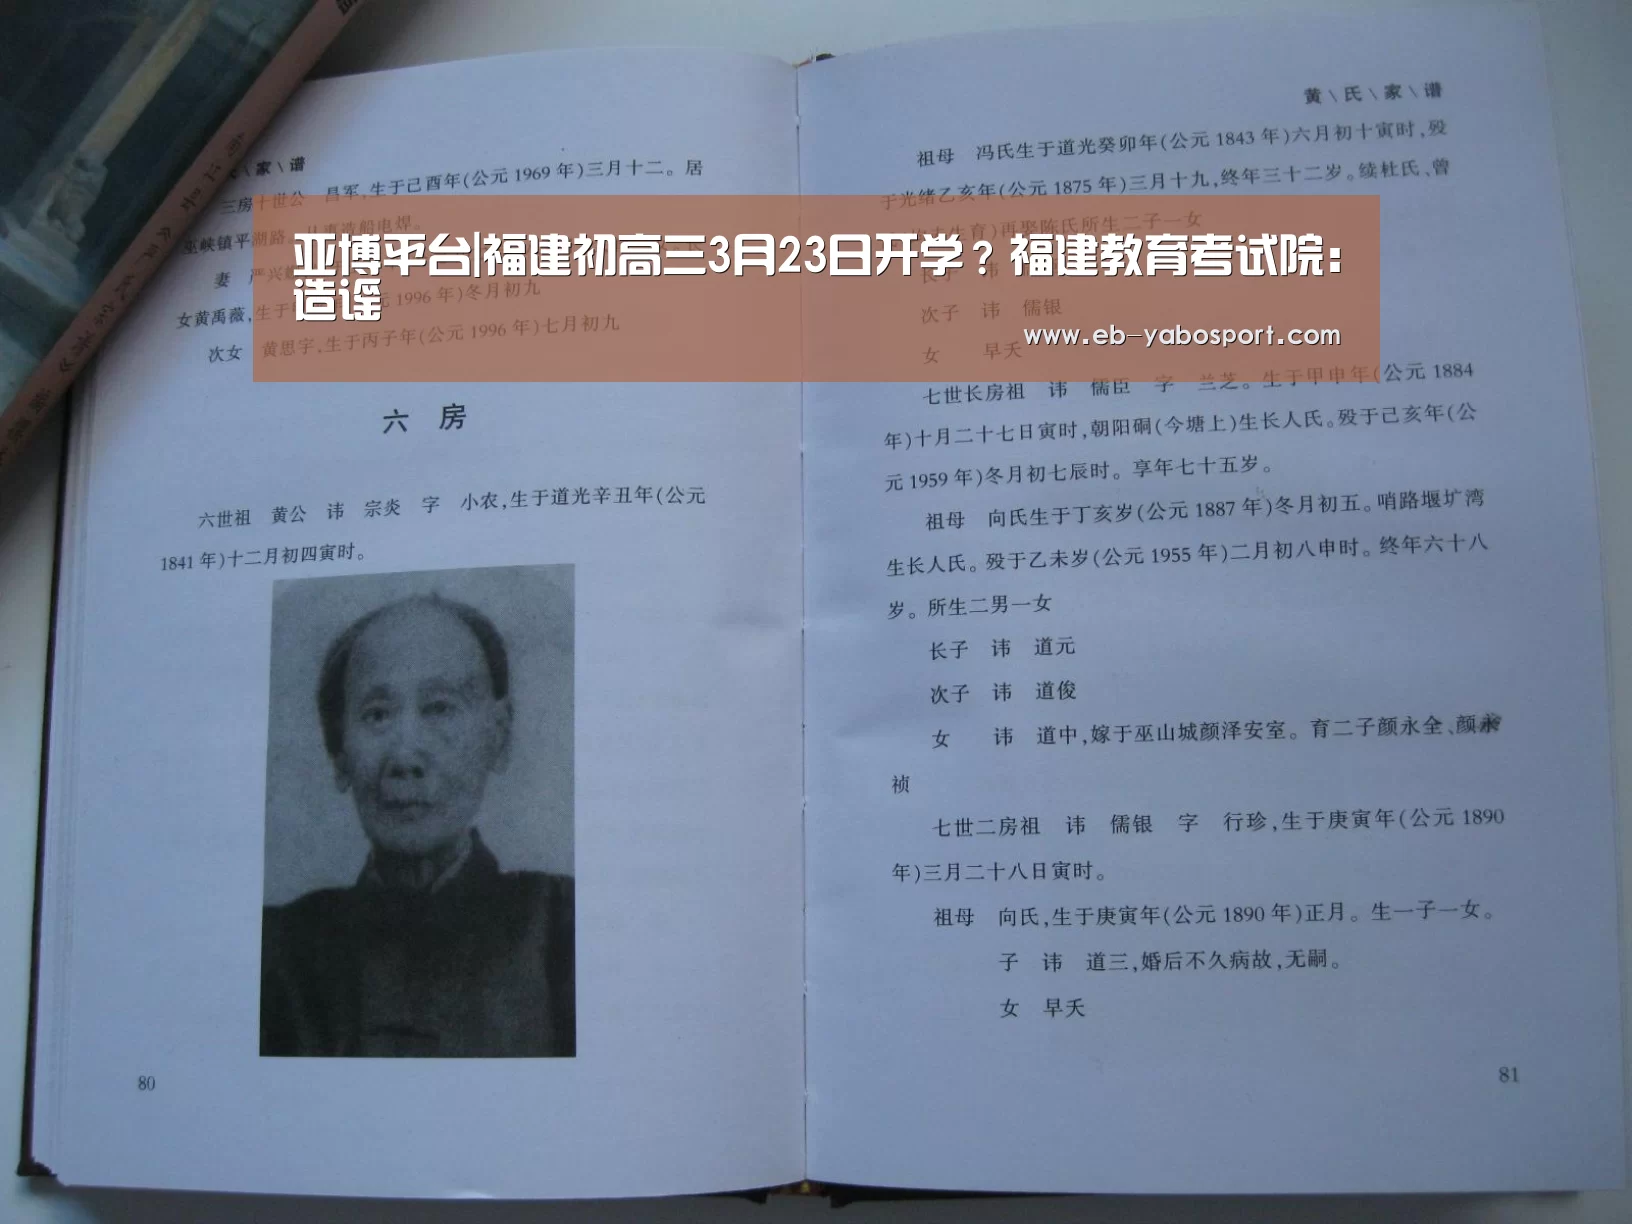 亚博平台|福建初高三3月23日开学？福建教育考试院：
造谣
www.eb-yabosport.com
家\谱
三房十世公 昌军，生于己酉年(公元1969年)三月十二。居
巫峡镇平湖路。从事造船电焊。
妻 严兴
女黄禹薇，生于 1996年)冬月初九
次女 黄思宇，生于丙子年(公元1996年)七月初九
六 房
六世祖 黄公 讳 宗炎 字 小农，生于道光辛丑年(公元
1841年)十二月初四寅时。
80
黄\氏\家\谱
祖母 冯氏生于道光癸卯年(公元1843年)六月初十寅时，殁
于光绪乙亥年(公元1875年)三月十九，终年三十二岁。续杜氏、曾
生育)再娶陈氏所生二子一女
长子 讳
次子 讳 儒银
女 早夭
七世长房祖 讳 儒臣 字 兰芝。生于甲申年(公元1884
年)十月二十七日寅时，朝阳硐(今塘上)生长人氏。殁于己亥年(公
元1959年)冬月初七辰时。享年七十五岁。
祖母 向氏生于丁亥岁(公元1887年)冬月初五。哨路堰圹湾
生长人氏。殁于乙未岁(公元1955年)二月初八申时。终年六十八
岁。所生二男一女
长子 讳 道元
次子 讳 道俊
女 讳 道中，嫁于巫山城颜泽安室。育二子颜永全、颜永
祯
七世二房祖 讳 儒银 字 行珍，生于庚寅年(公元1890
年)三月二十八日寅时。
祖母 向氏，生于庚寅年(公元1890年)正月。生一子一女。
子 讳 道三，婚后不久病故，无嗣。
女 早夭
81